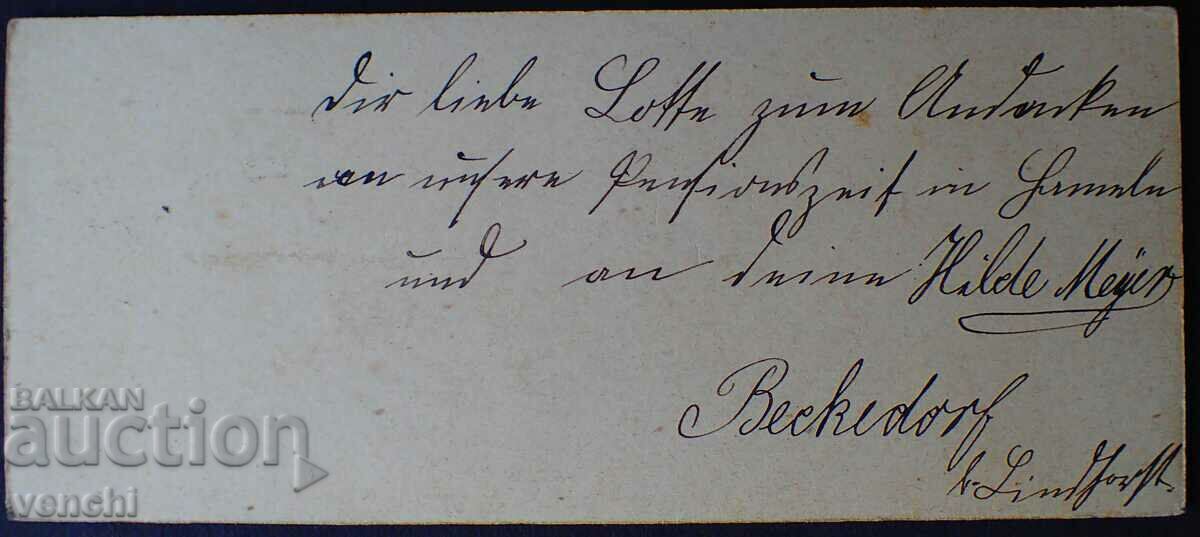 Dir liebe Lotte zum Andenken
an unsere Pensionszeit in Hameln
und an deine Hilde Meyer
Beckedorf
b. Lindhorst.
BALKAN
auction
venchi